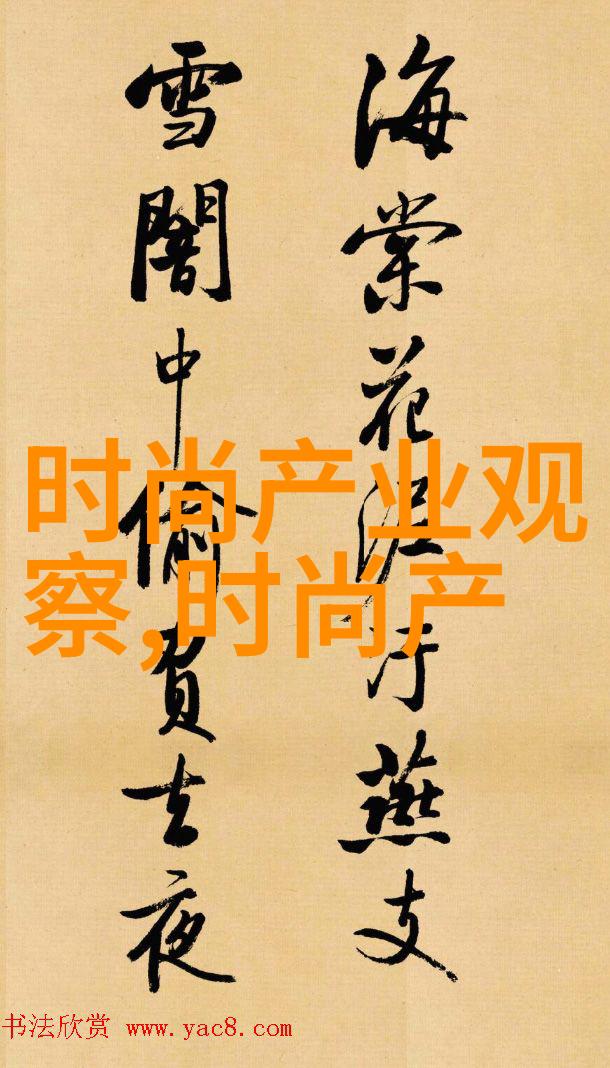 海棠花泥汙燕支
雪闇中偷負去夜
时尚产业观
察,时尚产
书法欣赏 www.yac8.com